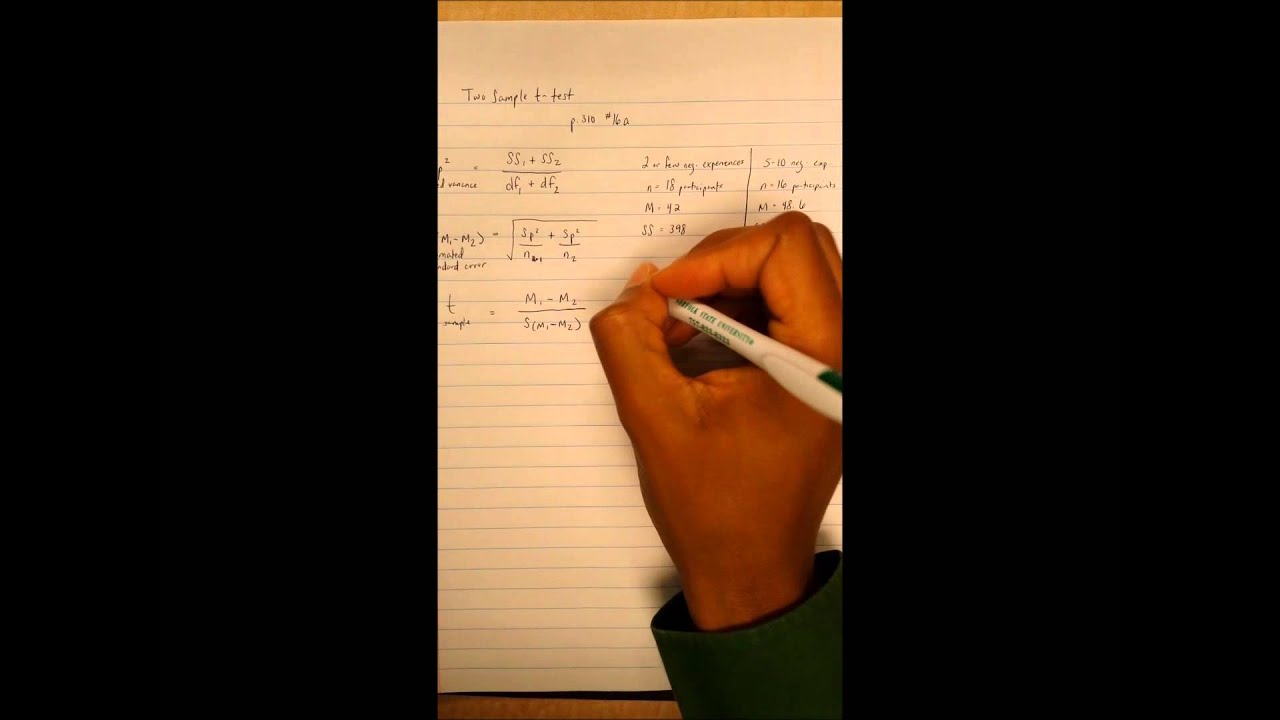 Two Sample t-test
p. 310 #16a
p² = SS₁ + SS₂ / df₁ + df₂
ed variance
(M₁-M₂) = √ Sp²/n₁ + Sp²/n₂
mated
ndard error
t = M₁ - M₂ / S(M₁-M₂)
sample
2 or few neg. experiences
n = 18 participants
M = 42
SS = 398
5-10 neg. exp
n = 16 participants
M = 48.6
NORFOLK STATE UNIVERSITY®